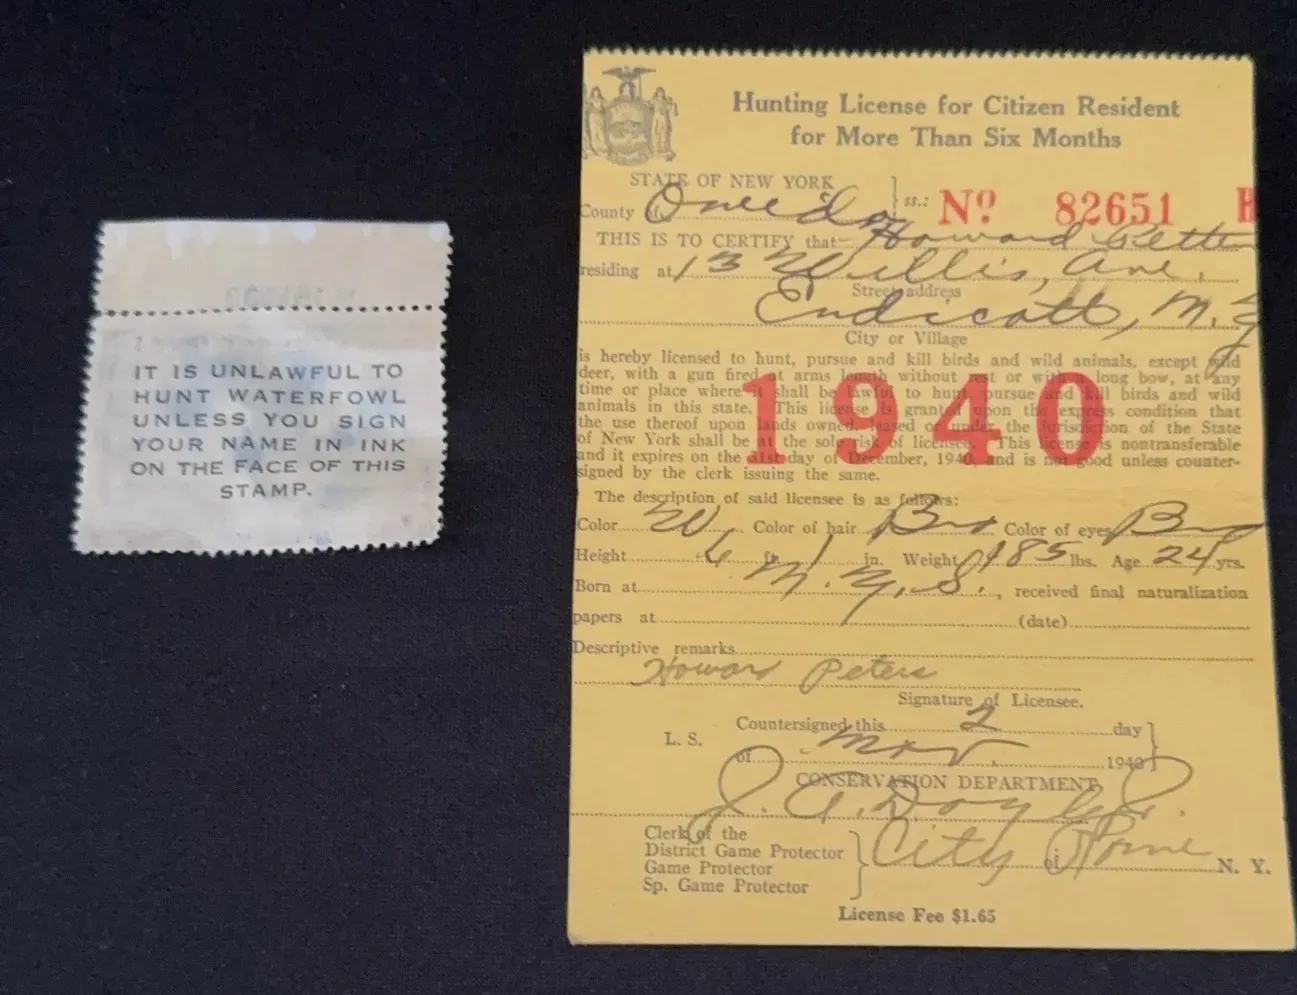 IT IS UNLAWFUL TO
HUNT WATERFOWL
UNLESS YOU SIGN
YOUR NAME IN INK
ON THE FACE OF THIS
STAMP.
Hunting License for Citizen Resident
for More Than Six Months
STATE OF NEW YORK
County of Oneida ss.: No. 82651 H
THIS IS TO CERTIFY that Howard
residing at 13 Willis, Ave.
Street address
Endicott, N.Y
City or Village
is hereby licensed to hunt, pursue and kill birds and wild animals, except wild
deer, with a gun fired at arms length without rest or with a long bow, at any
time or place where it shall be lawful to hunt, pursue and kill birds and wild
animals in this state. This license is granted upon the express condition that
the use thereof upon lands owned, leased or under the jurisdiction of the State
of New York shall be at the sole risk of licensee. This license is nontransferable
and it expires on the 31st day of December, 1940, and is not good unless counter-
signed by the clerk issuing the same.
1940
The description of said licensee is as follows:
Color W Color of hair Br Color of eyes Br
Height 6 ft. 1 in. Weight 185 lbs. Age 24 yrs.
Born at N.Y.S., received final naturalization
papers at (date)
Descriptive remarks
Howard Peters
Signature of Licensee.
Countersigned this 2 day
L. S.
of Nov. 1940
CONSERVATION DEPARTMENT
J. A. Doyle
Clerk of the City of Rome N. Y.
District Game Protector
Game Protector
Sp. Game Protector
License Fee $1.65